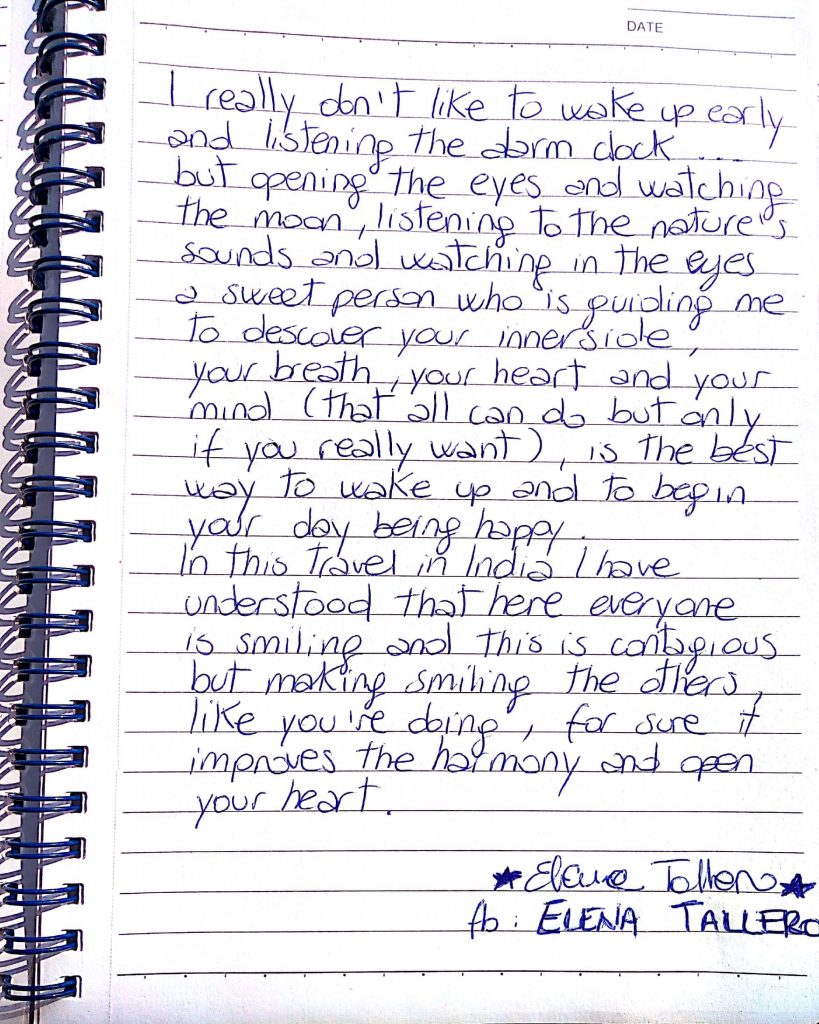 DATE
I really don't like to wake up early
and listening the alarm clock ....
but opening the eyes and watching
the moon, listening to the nature's
sounds and watching in the eyes
a sweet person who is guiding me
to descover your innerside,
your breath, your heart and your
mind (that all can do but only
if you really want), is the best
way to wake up and to begin
your day being happy.
In this travel in India I have
understood that here everyone
is smiling and this is contagious
but making smiling the others,
like you're doing, for sure it
improves the harmony and open
your heart.
★Elena Tallero★
fb: ELENA TALLERO